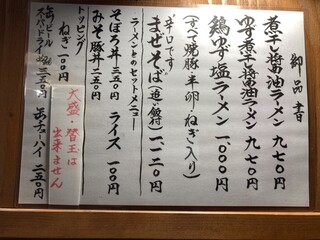 御品書
煮干し醤油ラーメン 九七〇円
ゆず煮干醤油ラーメン 九七〇円
鶏ゆず塩ラーメン 一、〇〇〇円
(すべて焼豚・半卵・ねぎ入り)
辛口です!
まぜそば(追い飯付) 一、一二〇円
ラーメンとのセットメニュー
そぼろ丼 三五〇円 ライス 一〇〇円
みそ豚丼 三五〇円
トッピング
ねぎ 一〇〇円
大盛・替玉は
出来ません
缶ビール
スーパードライ 三五〇円 缶チューハイ 三五〇円